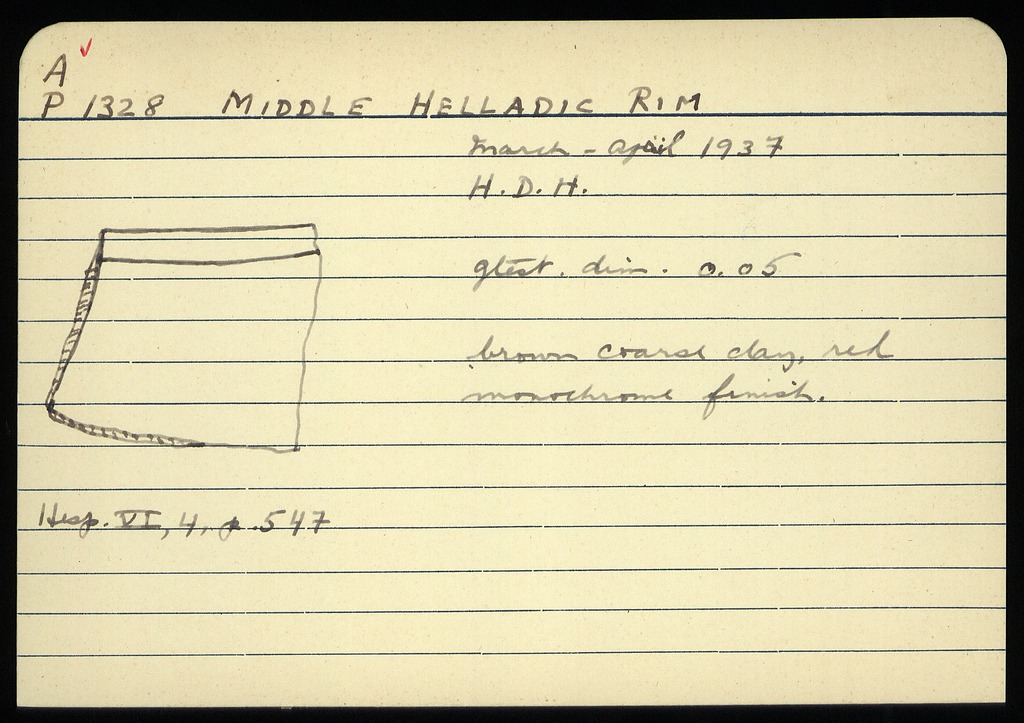 A
P 1328 MIDDLE HELLADIC RIM
March - April 1937
H. D. H.
gtest. dim. 0.05
brown coarse clay, red
monochrome finish.
Hesp. VI, 4, p. 547